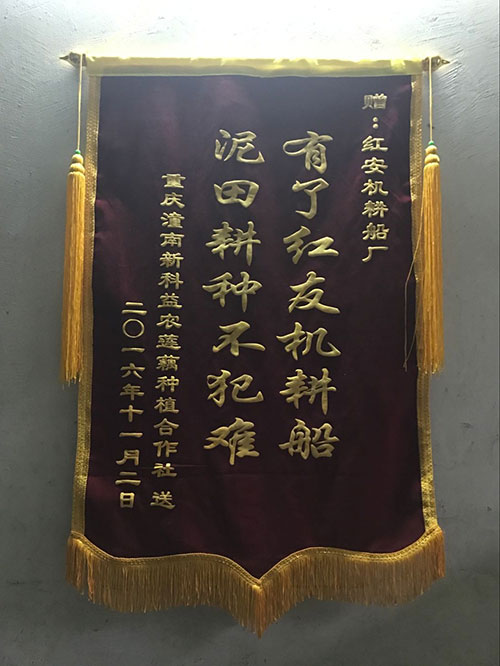 赠：红安机耕船厂
有了红友机耕船
泥田耕种不犯难
重庆潼南新科益农莲藕种植合作社 送
二〇一六年十一月二日